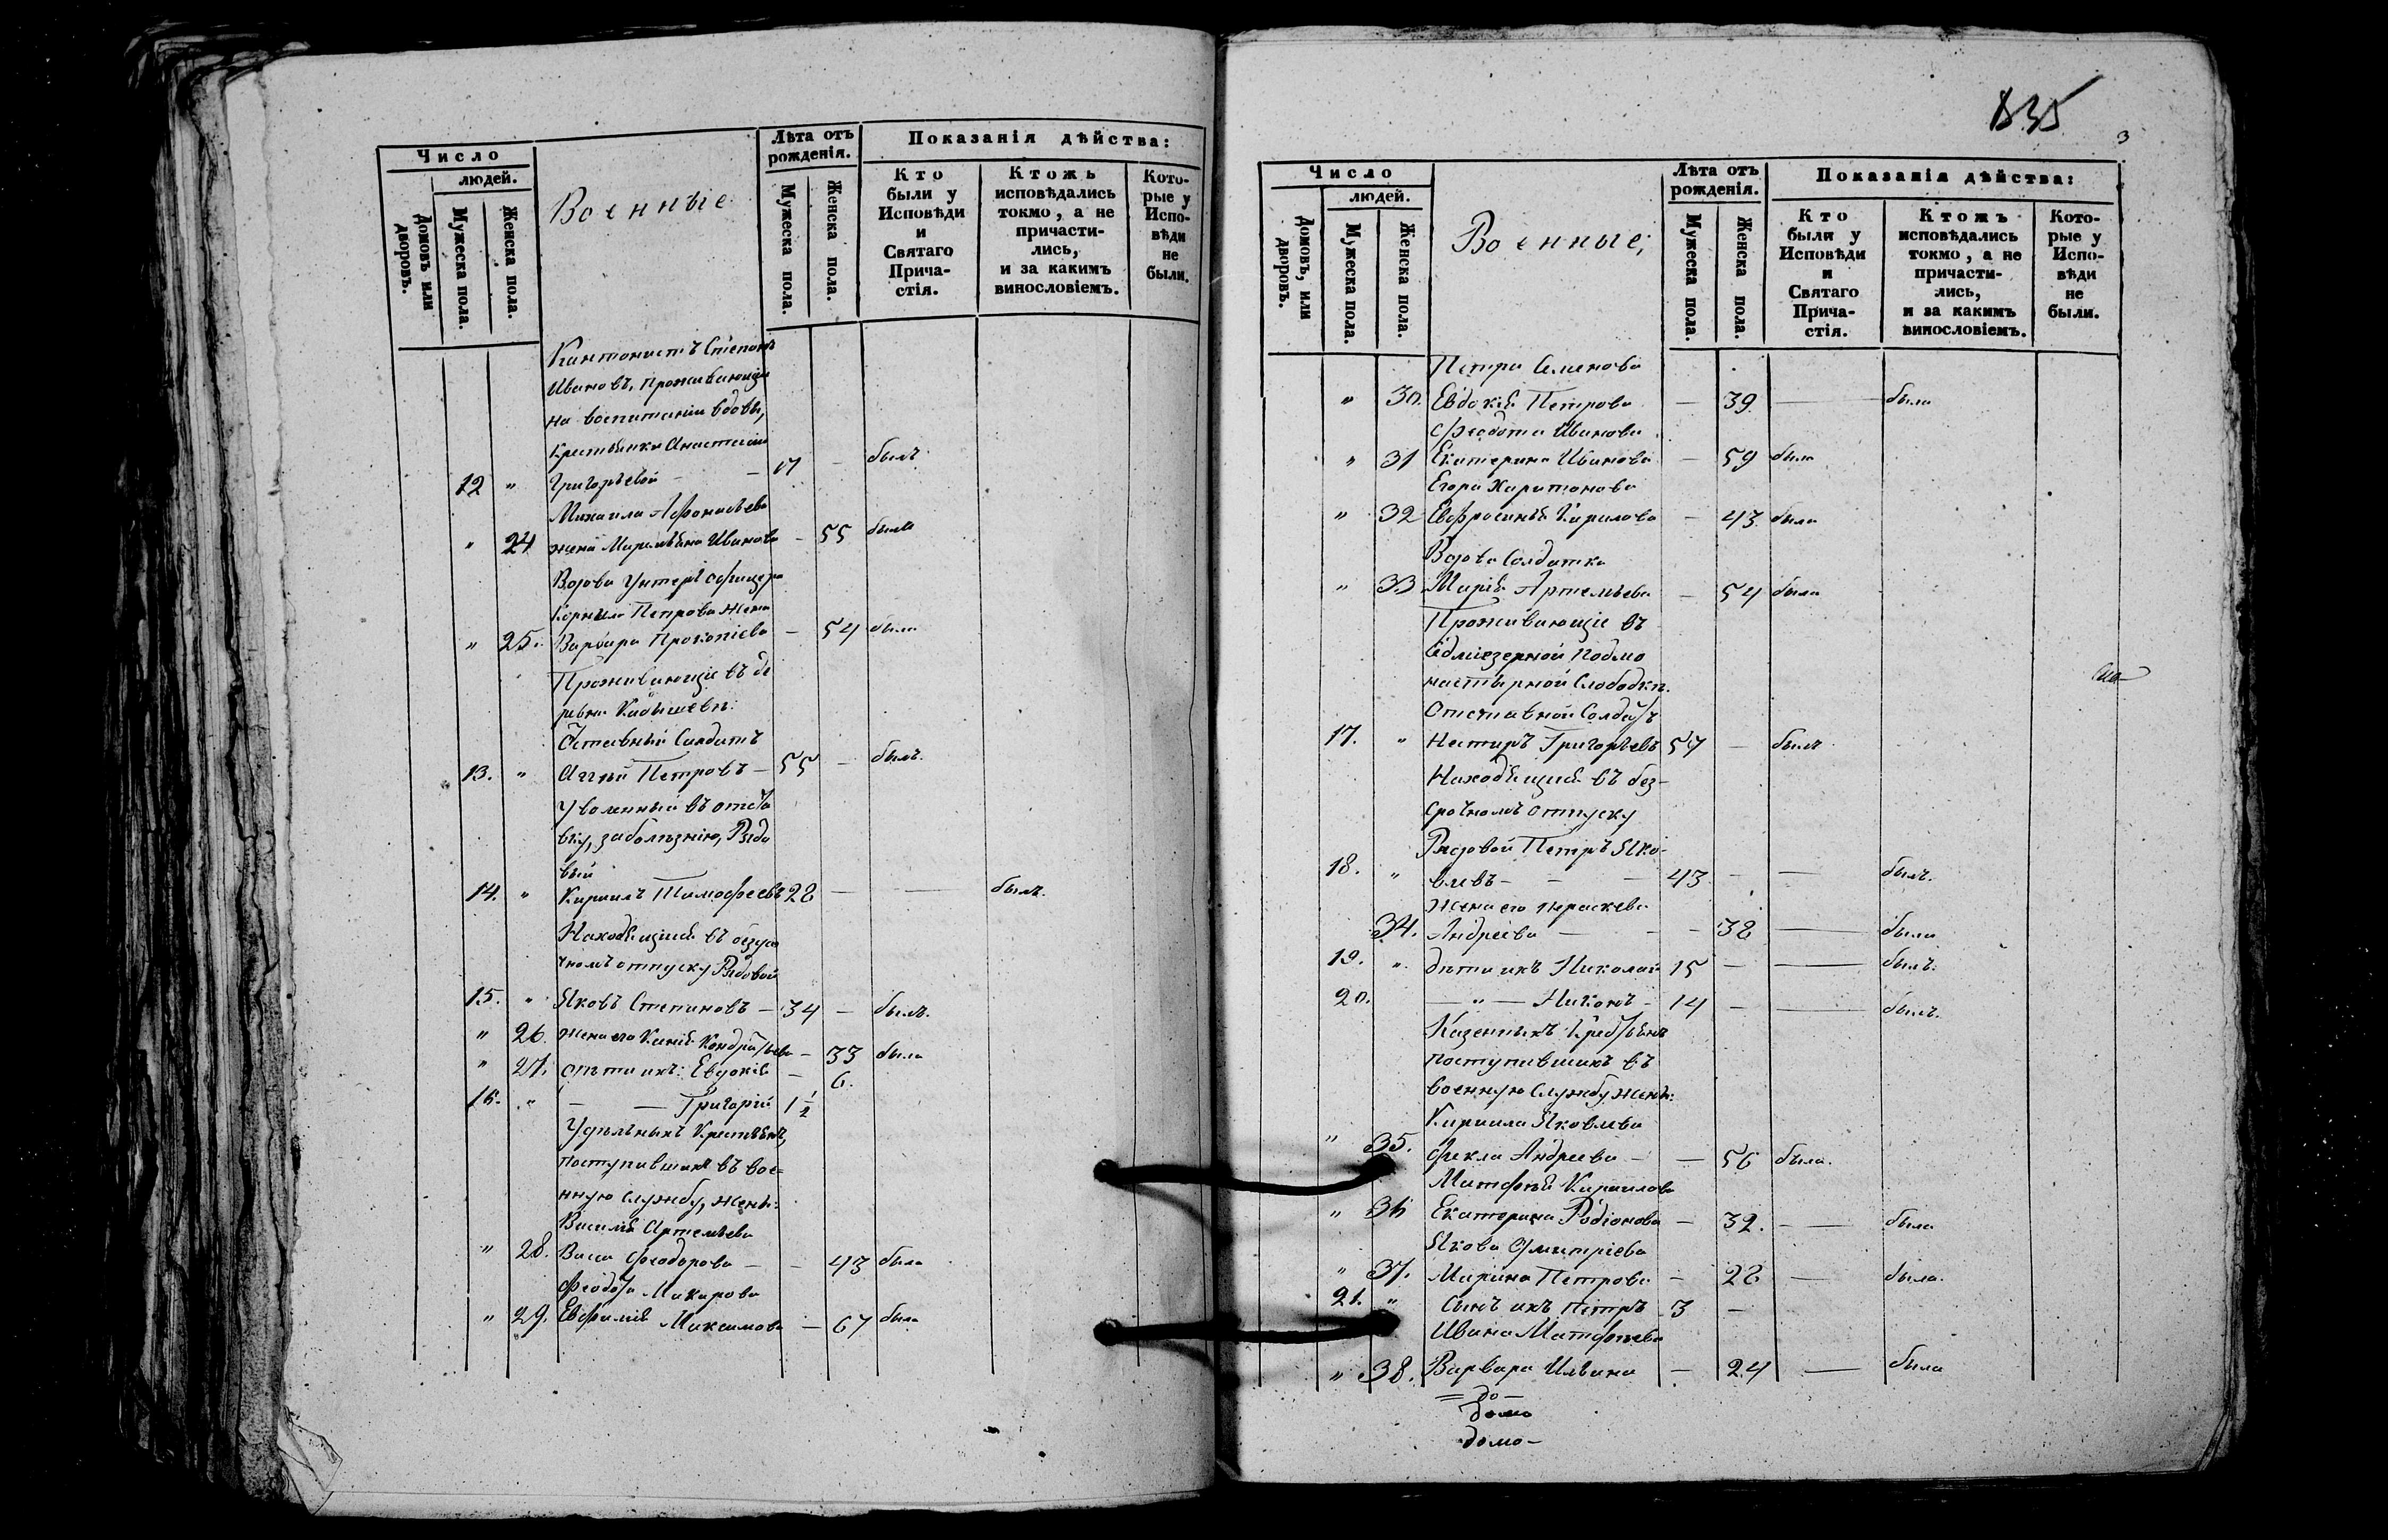 Число
людей.
Домовъ или дворовъ.
Мужеска пола.
Женска пола.
Военные
Лѣта отъ рожденія.
Мужеска пола.
Женска пола.
Показанія дѣйства:
Кто были у Исповѣди и Святаго Прича-стія.
Ктожъ исповѣдались токмо, а не причасти-лись, и за какимъ винословіемъ.
Кото-рые у Испо-вѣди не были.
Кантонистъ Степанъ
Ивановъ, проживающій
на воспитаніи вдовы,
Крестьянки Анастасіи
12 " Григорьевой - - 17 - былъ
Михаила Афонасьева
" 24 жена Мирамьяна Иванова - 55 была
Вдова Унтеръ Офицера
Корнила Петрова жена
" 25. Варвара Прокопіева - 54 была
Проживающіе въ де
ревни Кадышевѣ:
Отставный Солдатъ
13. " Аггей Петровъ - 55 - былъ.
Уволенный въ отста
вку, за болѣзнію, Рядо
вый
14. " Кириллъ Тимофеевъ 28 - - былъ.
Находящійся въ безсро
чномъ отпуску Рядовой
15. " Яковъ Степановъ - 34 - былъ.
" 26. жена его Ксенія Кондратьева - 33 была
" 27. дѣти ихъ: Евдокія - 6.
16. " - - Григорій 1 1/2
Удѣльныхъ Крестьянъ,
поступившихъ въ вое=
нную службу, жены:
Василія Артемьева
" 28. Васса Феодорова - - 43 была
Феодота Макарова
" 29. Евфимія Максимова - 67 была
835
3
Число
людей.
Домовъ, или дворовъ.
Мужеска пола.
Женска пола.
Военные;
Лѣта отъ рожденія.
Мужеска пола.
Женска пола.
Показанія дѣйства:
Кто были у Исповѣди и Святаго Прича-стія.
Ктожъ исповѣдались токмо, а не причасти-лись, и за какимъ винословіемъ.
Кото-рые у Испо-вѣди не были.
Петра Семенова
" 30. Евдокія Петрова - 39. - была
Феодота Иванова
" 31 Екатерина Иванова - 59 была
Егора Харитонова
" 32 Евфросинья Кирилова - 43 была
Вдова Солдатка
" 33 Марія Артемьева - 54 была
Проживающіе въ
Седміезерной Подмо
настырной Слободкѣ.
Отставной Солдатъ
17. " Нестиръ Григорьевъ 57 - былъ
Находящійся въ без-
срочномъ отпуску
Рядовой Петръ Яко-
18. " влевъ - - - 43 - - былъ.
Жена его Параскева
34. Андреева - - - 38 - была
19. " дѣти ихъ Николай 15 - - былъ.
20. - " - Никонъ - 14 - - былъ.
Казенныхъ Крестьянъ
поступившихъ въ
военную службу жены:
Кирилла Яковлева
" 35. Фекла Андреева - - 56 была.
Матфей Кириллова
" 36 Екатерина Родіонова - 32. - - была
Якова Дмитріева
" 37. Марина Петрова - 28 - была.
21. " Сынъ ихъ Петръ 3 -
Ивана Матфеева
" 38. Варвара Ильина - 24 - была
= до -
домо
домо -